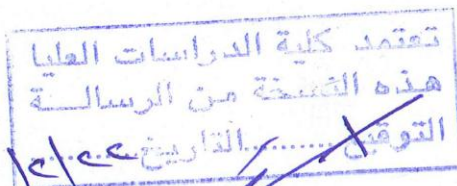 تعتمد كلية الدراسات العليا
هذه النسخة من الرسالـــة
التوقيع..........التاريخ..........